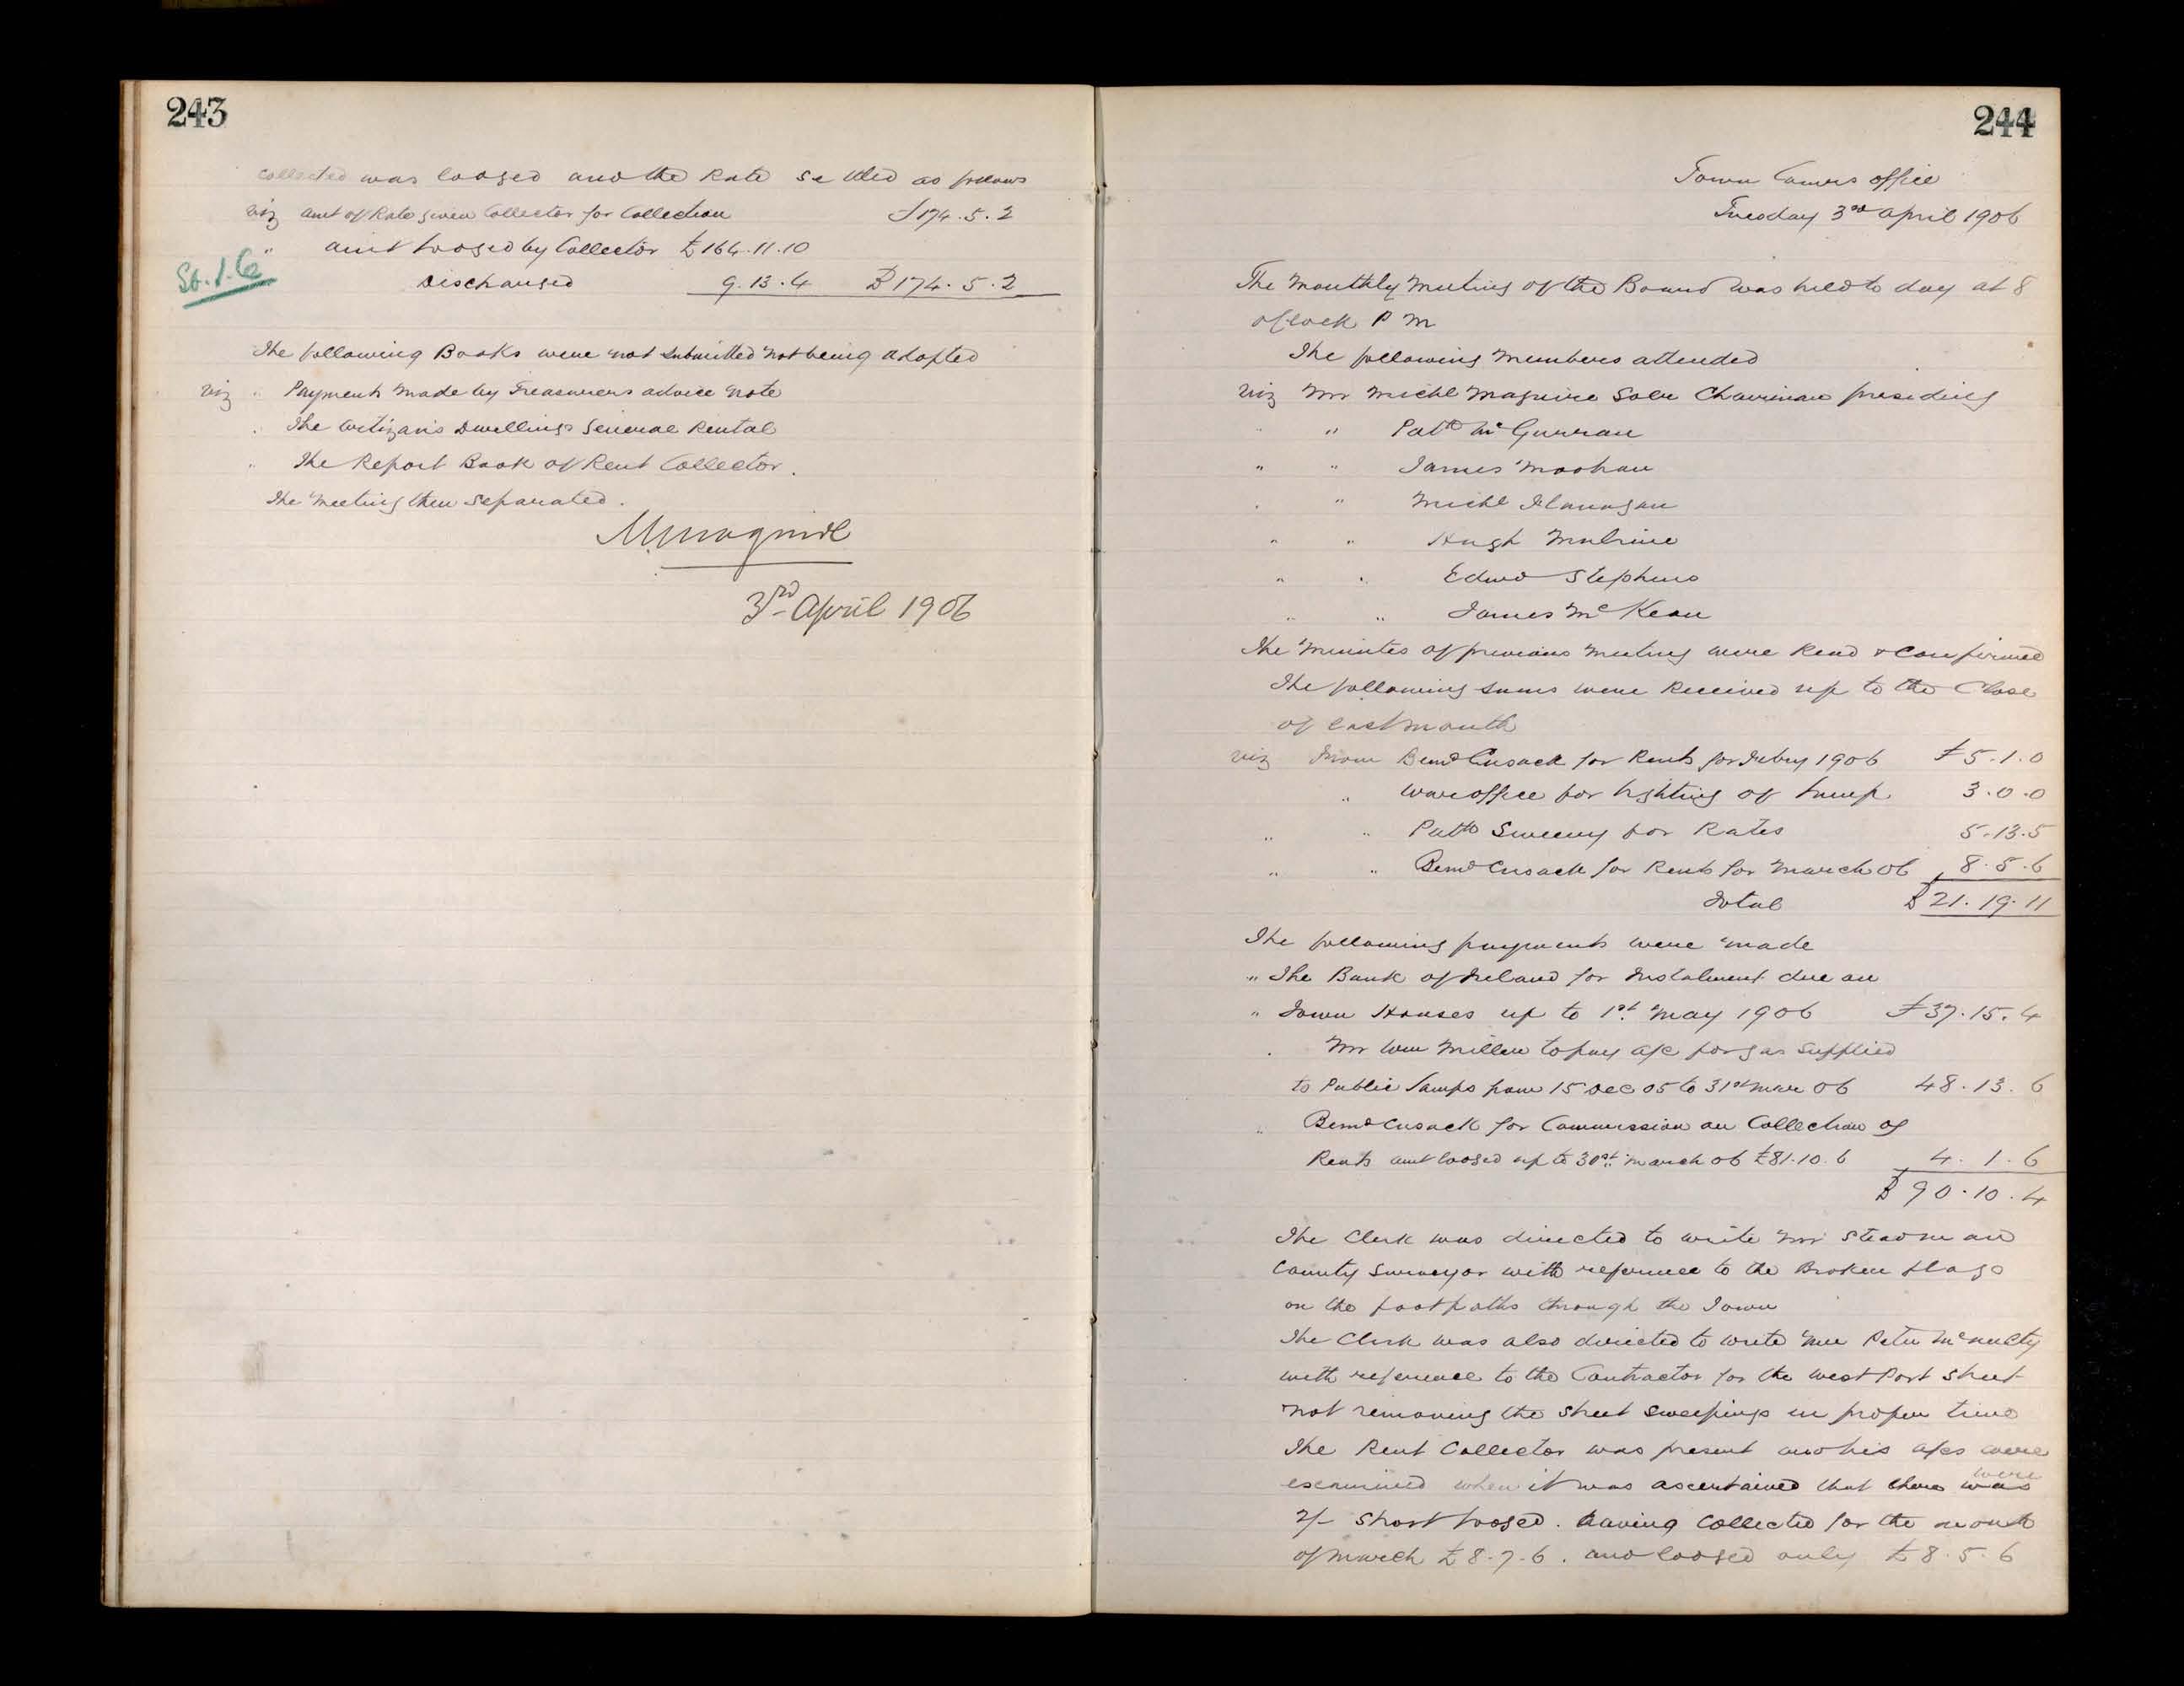 243
collected was lodged and the Rate settled as follows
viz amt of Rate given Collector for Collection £174.5.2
" amt lodged by Collector £164.11.10
Discharged 9.13.4 £174.5.2
The following Books were not submitted not being adopted
viz " Payments made by Treasurers advice note
" The Artizans Dwellings General Rental
" The Report Book of Rent Collector.
The Meeting then separated.
M Maguire
3rd April 1906
244
Town Comrs office
Tuesday 3rd April 1906
The Monthly Meeting of the Board was held to day at 8
oclock P M
The following members attended
viz Mr Michl Maguire Solr Chairman presiding
" " Patk McGurran
" " James Moohan
" " Michl Flanagan
" " Hugh Mulrine
" " Edwd Stephens
" " James McKean
The Minutes of previous Meeting were Read & Confirmed
The following sums were Received up to the Close
of last month
viz From Bernd Cusack for Rents for Febry 1906 £5.1.0
" War office for lighting of lamp 3.0.0
" " Patk Sweeny for Rates 5.13.5
" " Bernd Cusack for Rents for March 06 8.5.6
Total £21.19.11
The following payments were made
" The Bank of Ireland for Instalment due on
" Town Houses up to 1st May 1906 £37.15.4
" Mr Wm Miller to pay a/c for gas supplied
to Public Lamps from 15 Dec 05 to 31st Mar 06 48.13.6
" Bernd Cusack for Commission on Collection of
Rents amt lodged up to 30st March 06 £81.10.6 4.1.6
£90.10.4
The Clerk was directed to write Mr
County Surveyor with reference to the Broken flags
on the footpaths through the Town
The Clerk was also directed to write Mr Peter McNulty
with reference to the Contractor for the West Port Street
not removing the street sweepings in proper time
The Rent Collector was present and his a/cs were
examined when it was ascertained that there was were
2/- short lodged. having Collected for the month
of March £8.7.6. and lodged only £8.5.6